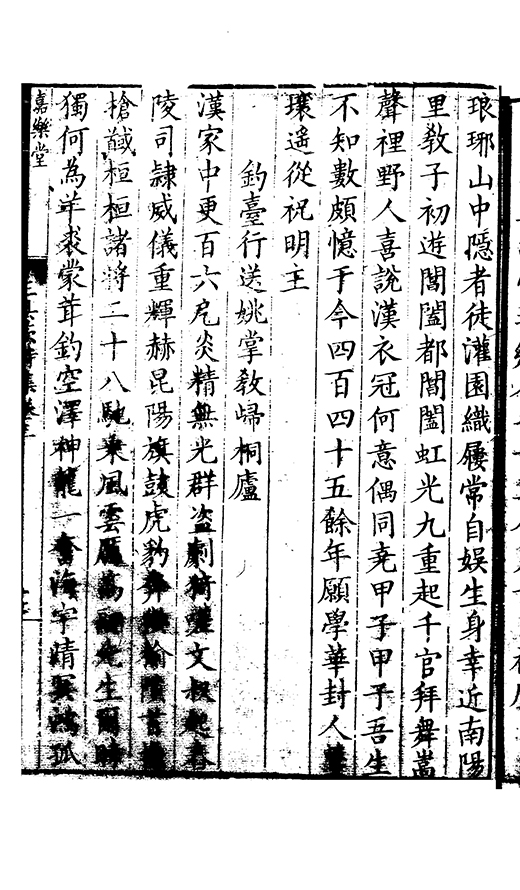 琅琊山中隱者徒灌園織屨常自娛生身幸近南陽
里敎子初遊闔閭都閶闔虹光九重起千官拜舞嵩
聲裡野人喜說漢衣冠何意偶同堯甲子甲子吾生
不知數頗憶于今四百四十五餘年願學華封人
壤遙從祝明主
釣臺行送姚掌敎歸桐廬
漢家中更百六戹炎精無光群盜劇文叔起舂
陵司隷威儀重輝赫昆陽旗鼓虎豹
搶馘桓桓諸將二十八馳乘風雲先生爾時
獨何為羊裘蒙茸釣空澤神龍一奮海宇晴孤
嘉樂堂